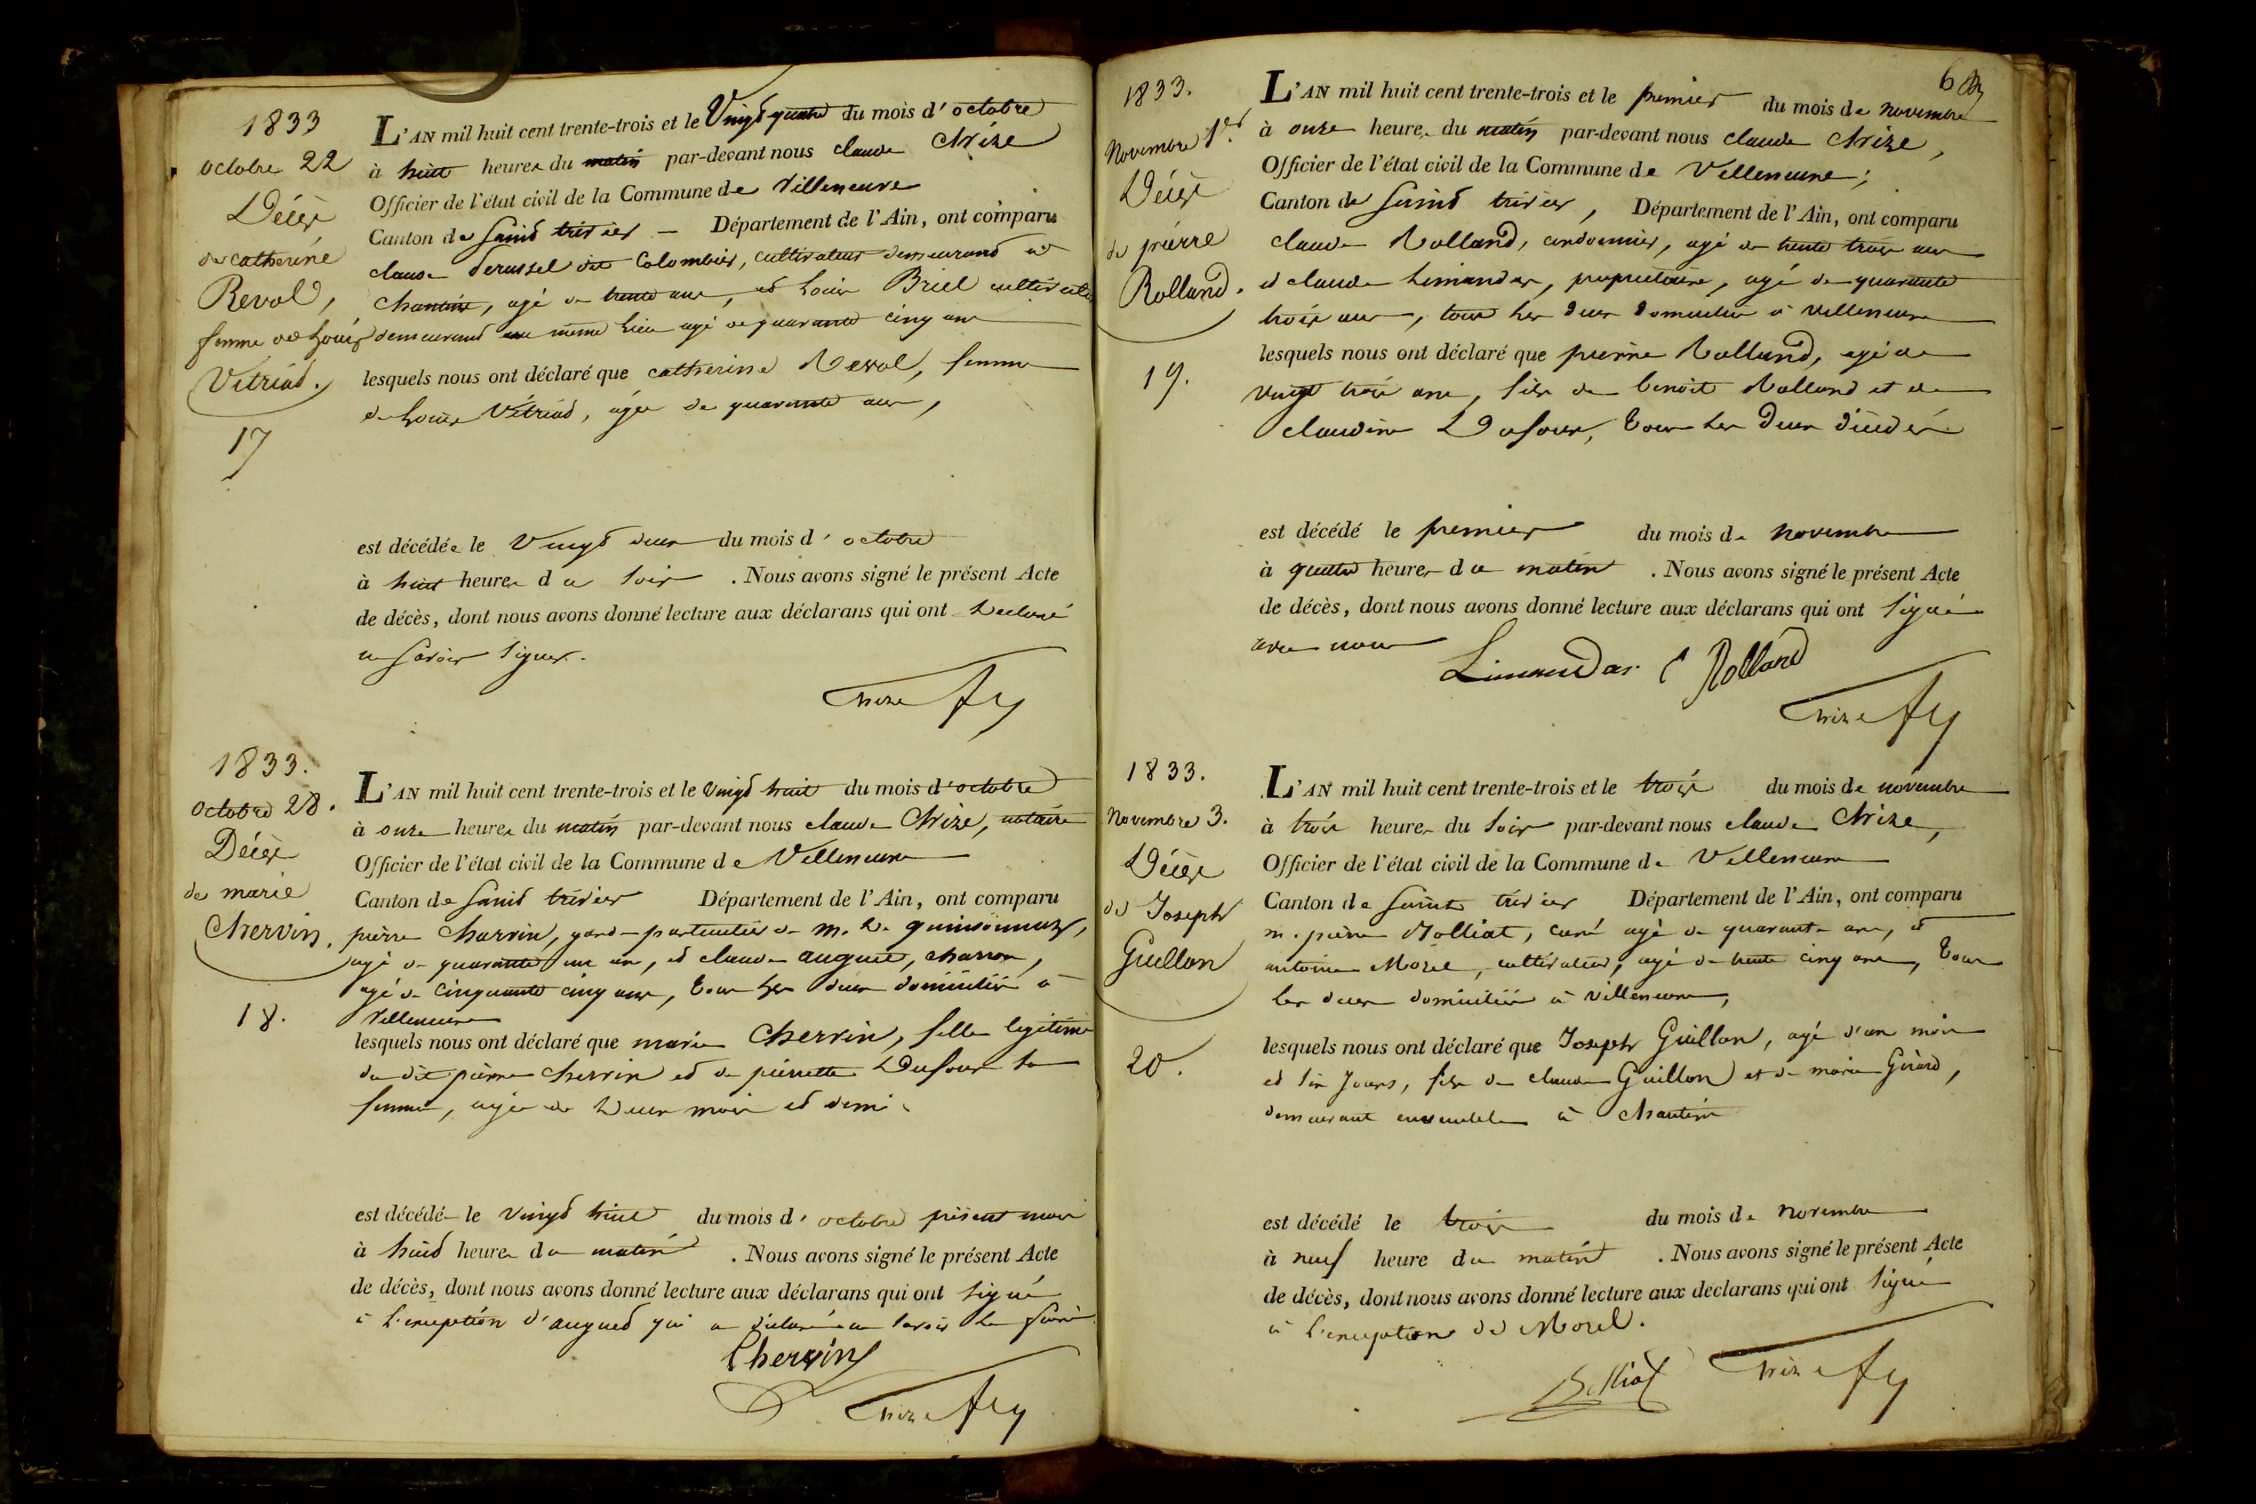 1833
octobre 22
Décès
de catherine
Reval,
femme de Louis
Vétriad.
17
L'AN mil huit cent trente-trois et le Vingt quatre du mois d'octobre
à huit heures du matin par-devant nous claude Chrize
Officier de l'état civil de la Commune de Villeneuve
Canton de Saint trivier — Département de l'Ain, ont comparu
claude Perussel dit Colombier, cultivateur demeurant à
Chanteins, agé de trente ans, et Louis Briel cultivateur
demeurant au même lieu agé de quarante cinq ans
lesquels nous ont déclaré que catherine Reval, femme
de Louis Vétriad, agée de quarante ans,
est décédée le Vingt deux du mois d'octobre
à huit heures du soir . Nous avons signé le présent Acte
de décès, dont nous avons donné lecture aux déclarans qui ont declaré
ne savoir signer.
Chrize
1833.
octobre 28.
Décès
de marie
Chervin.
18.
L'AN mil huit cent trente-trois et le vingt huit du mois d'octobre
à onze heures du matin par-devant nous claude Chrize, notaire
Officier de l'état civil de la Commune de Villeneuve
Canton de Saint trivier Département de l'Ain, ont comparu
pierre Charvin, garde particulier de m. de
agé de quarante un an, et claude auguet, charron,
agé de cinquante cinq ans, tous les deux domiciliés à
Villeneuve
lesquels nous ont déclaré que marie Chervin, fille legitime
du dit pierre chervin et de pierrette Dufour sa
femme, agée de deux mois et demi.
est décédé le vingt huit du mois d'octobre présent mois
à huit heures du matin . Nous avons signé le présent Acte
de décès, dont nous avons donné lecture aux déclarans qui ont signé
à l'exception d'augued qui a déclaré ne savoir le faire
Chervin
Chrize
6
1833.
Novembre 1er
Décès
de pierre
Rolland.
19.
L'AN mil huit cent trente-trois et le premier du mois de novembre
à onze heures du matin par-devant nous claude Chrize,
Officier de l'état civil de la Commune de Villeneuve;
Canton de Saint trivier, Département de l'Ain, ont comparu
claude Rolland, cordonnier, agé de trente trois ans
et claude Limandas, propriétaire, agé de quarante
trois ans, tous les deux domiciliés à Villeneuve
lesquels nous ont déclaré que pierre Rolland, agé de
vingt trois ans, fils de benoit Rolland et de
claudine Dufour, tous les deux décédés
est décédé le premier du mois de novembre
à quatre heures du matin . Nous avons signé le présent Acte
de décès, dont nous avons donné lecture aux déclarans qui ont signé
avec nous
Limandas. C Rolland
Chrize
1833.
Novembre 3.
Décès
de Joseph
Guillon
20.
L'AN mil huit cent trente-trois et le trois du mois de novembre
à trois heures du soir par-devant nous claude Chrize,
Officier de l'état civil de la Commune de Villeneuve
Canton de Saint trivier Département de l'Ain, ont comparu
m. pierre Molliat, curé agé de quarante ans, et
antoine Morel, cultivateur, agé de trente cinq ans, tous
les deux domiciliés à Villeneuve,
lesquels nous ont déclaré que Joseph Guillon, agé d'un mois
et six jours, fils de claude Guillon et de marie Girard,
demeurant ensemble à Chanteins
est décédé le trois du mois de novembre
à neuf heure du matin . Nous avons signé le présent Acte
de décès, dont nous avons donné lecture aux declarans qui ont signé
à l'exception de Morel.
Chrize